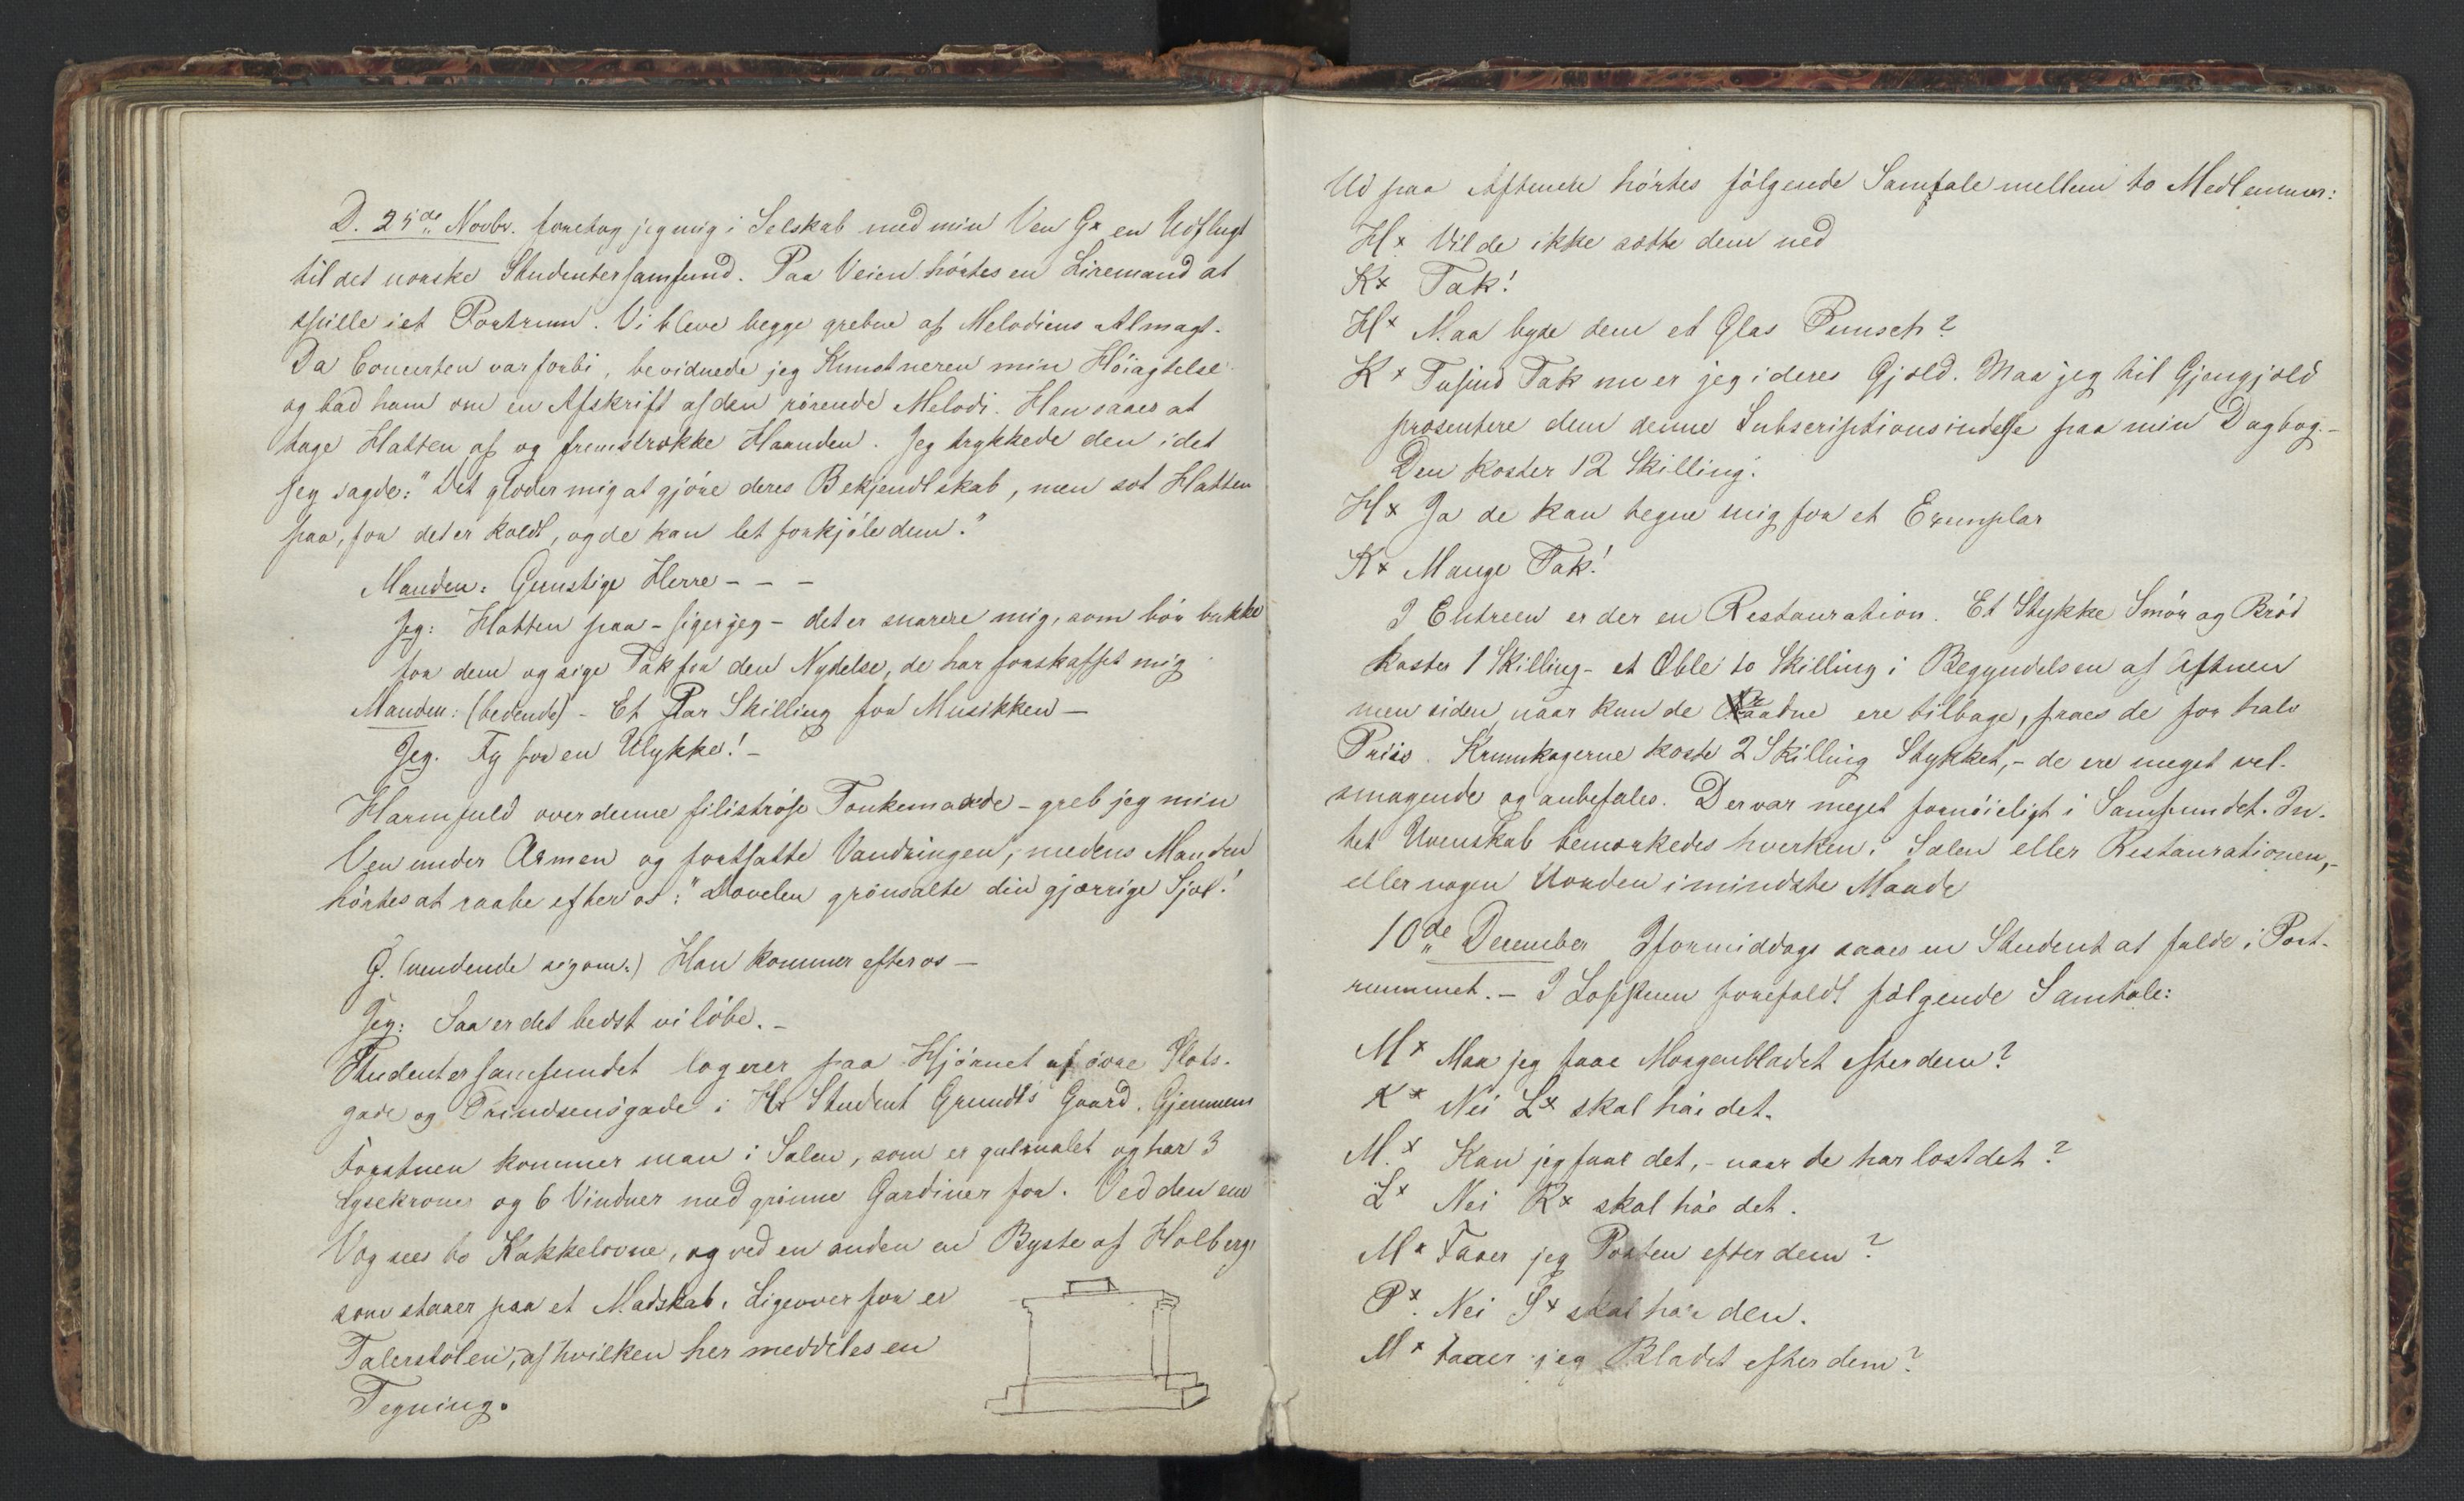 D. 25de Novbr. foretog jeg mig i Selskab med min Ven G* en Udflugt
til det norske Studentersamfund. Paa Veien hørtes en Liremand at
spille i et Portrum. Vi bleve begge grebne af Melodiens Almagt.
Da Concerten var forbi, bevidnede jeg Kunstneren min Høiagtelse
og bad ham om en Afskrift af den rørende Melodi. Han saaes at
tage Hatten af og fremstrække Haanden. Jeg trykkede den idet
jeg sagde: "Det glæder mig at gjøre deres Bekjendtskab, men sæt Hatten
paa, for det er koldt, og de kan let forkjøle dem."
Manden: Gunstige Herre - - -
Jeg: Hatten paa - siger jeg - det er snarere mig, som bør bukke
for dem og sige Tak for den Nydelse, de har forskaffet mig
Manden: (bedende) - Et Par Skilling for Musikken -
Jeg. Fy for en Ulykke! -
Harmfuld over denne filistrøse Tænkemaade - greb jeg min
Ven under Armen og fortsatte Vandringen, medens Manden
hørtes at raabe efter os: "Dævelen grønsalte din gjærrige Sjæl!
G. (vendende sig om:) Han kommer efter os -
Jeg: Saa er det bedst vi løbe. -
Studentersamfundet logerer paa Hjørnet af øvre Slots-
gade og Prindsensgade i Hr Student Grundts Gaard. Gjennem
Forstuen kommer man i Salen, som er gulmalet og har 3
Lysekroner og 6 Vinduer med grønne Gardiner for. Ved den ene
Væg sees to Kakkelovne, og ved en anden en Byste af Holberg,
som staaer paa et Madskab. Ligeoverfor er
Talerstolen, af hvilken her meddeles en
Tegning.
Ud paa Aftenen hørtes følgende Samtale mellem to Medlemmer:
H* Vil de ikke sætte dem ned
K* Tak!
H* Maa byde dem et Glas Punsch?
K* Tusind Tak nu er jeg i deres Gjæld. Maa jeg til Gjengjæld
præsentere dem denne Subscriptionsindbydelse paa min Dagbog. -
Den koster 12 Skilling.
H* Ja de kan tegne mig for et Exemplar
K* Mange Tak!
I Entreen er der en Restauration. Et Stykke Smør og Brød
koster 1 Skilling - et Æble to Skilling i Begyndelsen af Aftnen
men siden, naar kun de Raadne ere tilbage, faaes de for halv
Priis. Krumkagerne koste 2 Skilling Stykket, - de ere meget vel-
smagende og anbefales. Der var meget fornøieligt i Samfundet. In-
tet Uvenskab bemærkedes hverken i Salen eller Restaurationen, -
eller nogen Uorden i mindste Maade
10de December Iformiddags saaes en Student at falde i Port-
rummet. - I Læsestuen forefaldt følgende Samtale:
M* Maa jeg faae Morgenbladet efter dem?
K* Nei L* skal hae det.
M.* Kan jeg faae det, - naar de har læst det?
L* Nei R* skal hae det.
M* Faaer jeg Posten efter dem?
P*. Nei S* skal hae den.
M* Faaer jeg Bladet efter dem?